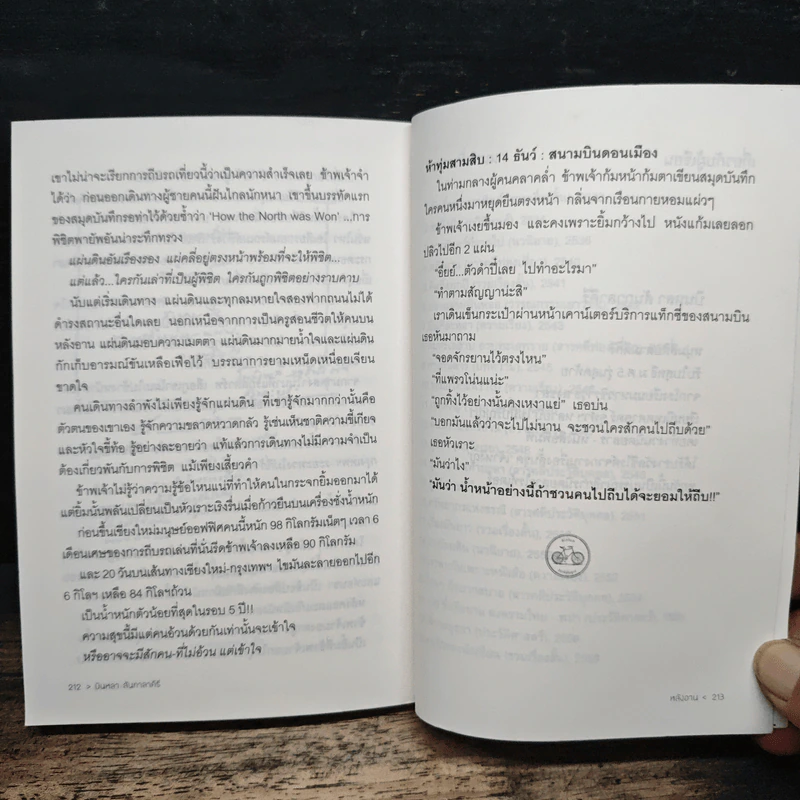 เขาไม่น่าจะเรียกการถีบรถเที่ยวนี้ว่าเป็นความสำเร็จเลย ข้าพเจ้าจำ
ได้ว่า ก่อนออกเดินทางผู้ชายคนนี้ฝันไกลนักหนา เขาขึ้นบรรทัดแรก
ของสมุดบันทึกรอท่าไว้ด้วยซ้ำว่า 'How the North was Won' ...การ
พิชิตพายัพอันน่าระทึกทรวง
แผ่นดินอันเรืองรอง แผ่คลี่อยู่ตรงหน้าพร้อมที่จะให้พิชิต...
แต่แล้ว...ใครกันเล่าที่เป็นผู้พิชิต ใครกันถูกพิชิตอย่างราบคาบ
นับแต่เริ่มเดินทาง แผ่นดินและทุกลมหายใจสองฟากถนนไม่ได้
ดำรงสถานะอื่นใดเลย นอกเหนือจากการเป็นครูสอนชีวิตให้คนบน
หลังอาน แผ่นดินมอบความเมตตา แผ่นดินมากมายน้ำใจและแผ่นดิน
กักเก็บอารมณ์ขันเหลือเฟือไว้ บรรณาการยามเหน็ดเหนื่อยเจียน
ขาดใจ
คนเดินทางลำพังไม่เพียงรู้จักแผ่นดิน ที่เขารู้จักมากกว่านั้นคือ
ตัวตนของเขาเอง รู้จักความขลาดหวาดกลัว รู้เช่นเห็นชาติความขี้เกียจ
และหัวใจขี้ท้อ รู้อย่างละอายว่า แท้แล้วการเดินทางไม่มีความจำเป็น
ต้องเกี่ยวพันกับการพิชิต แม้เพียงเสี้ยวคำ
ข้าพเจ้าไม่รู้ว่าความรู้ข้อไหนแน่ที่ทำให้คนในกระจกยิ้มออกมาได้
แต่ยิ้มนั้นพลันเปลี่ยนเป็นหัวเราะเริงรื่นเมื่อก้าวยืนบนเครื่องชั่งน้ำหนัก
ก่อนขึ้นเชียงใหม่มนุษย์ออฟฟิศคนนี้หนัก 98 กิโลกรัมเน็ตๆ เวลา 6
เดือนเศษของการถีบรถเล่นที่นั่นรีดข้าพเจ้าลงเหลือ 90 กิโลกรัม
และ 20 วันบนเส้นทางเชียงใหม่-กรุงเทพฯ ไขมันละลายออกไปอีก
6 กิโลฯ เหลือ 84 กิโลฯถ้วน
เป็นน้ำหนักตัวน้อยที่สุดในรอบ 5 ปี!!
ความสุขนี้มีแต่คนอ้วนด้วยกันเท่านั้นจะเข้าใจ
หรืออาจจะมีสักคน-ที่ไม่อ้วน แต่เข้าใจ
212 > บินหลา สันกาลาคีรี
ห้าทุ่มสามสิบ : 14 ธันว์ : สนามบินดอนเมือง
ในท่ามกลางผู้คนคลาคล่ำ ข้าพเจ้าก้มหน้าก้มตาเขียนสมุดบันทึก
ใครคนหนึ่งมาหยุดยืนตรงหน้า กลิ่นจากเรือนกายหอมแผ่วๆ
ข้าพเจ้าเงยขึ้นมอง และคงเพราะยิ้มกว้างไป หนังแก้มเลยลอก
ปลิวไปอีก 2 แผ่น
"อี๋ยย์...ตัวดำปี๋เลย ไปทำอะไรมา"
"ทำตามสัญญาน่ะสิ"
เราเดินเข็นกระเป๋าผ่านหน้าเคาน์เตอร์บริการแท็กซี่ของสนามบิน
เธอหันมาถาม
"จอดจักรยานไว้ตรงไหน"
"ที่แพรวโน่นแน่ะ"
"ถูกทิ้งไว้อย่างนั้นคงเหงาแย่" เธอบ่น
"บอกมันแล้วว่าจะไปไม่นาน จะชวนใครสักคนไปถีบด้วย"
เธอหัวเราะ
"มันว่าไง"
"มันว่า น้ำหน้าอย่างนี้ถ้าชวนคนไปถีบได้จะยอมให้ถีบ!!"
หลังอาน < 213